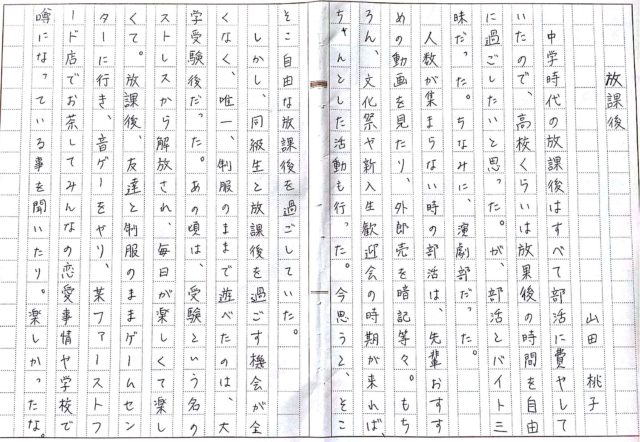 放課後
山田 桃子
中学時代の放課後はすべて部活に費やして
いたので、高校くらいは放果後の時間を自由
に過ごしたいと思った。が、部活とバイト三
昧だった。ちなみに、演劇部だった。
人数が集まらない時の部活は、先輩おすす
めの動画を見たり、外郎売を暗記等々。もち
ろん、文化祭や新入生歓迎会の時期が来れば、
ちゃんとした活動も行った。今思うと、そこ
そこ自由な放課後を過ごしていた。
しかし、同級生と放課後を過ごす機会が全
くなく、唯一、制服のままで遊べたのは、大
学受験後だった。あの頃は、受験という名の
ストレスから解放され、毎日が楽しくて楽し
くて。放課後、友達と制服のままゲームセン
ターに行き、音ゲーをやり、某ファーストフ
ード店でお茶してみんなの恋愛事情や学校で
噂になっている事を聞いたり。楽しかったな。